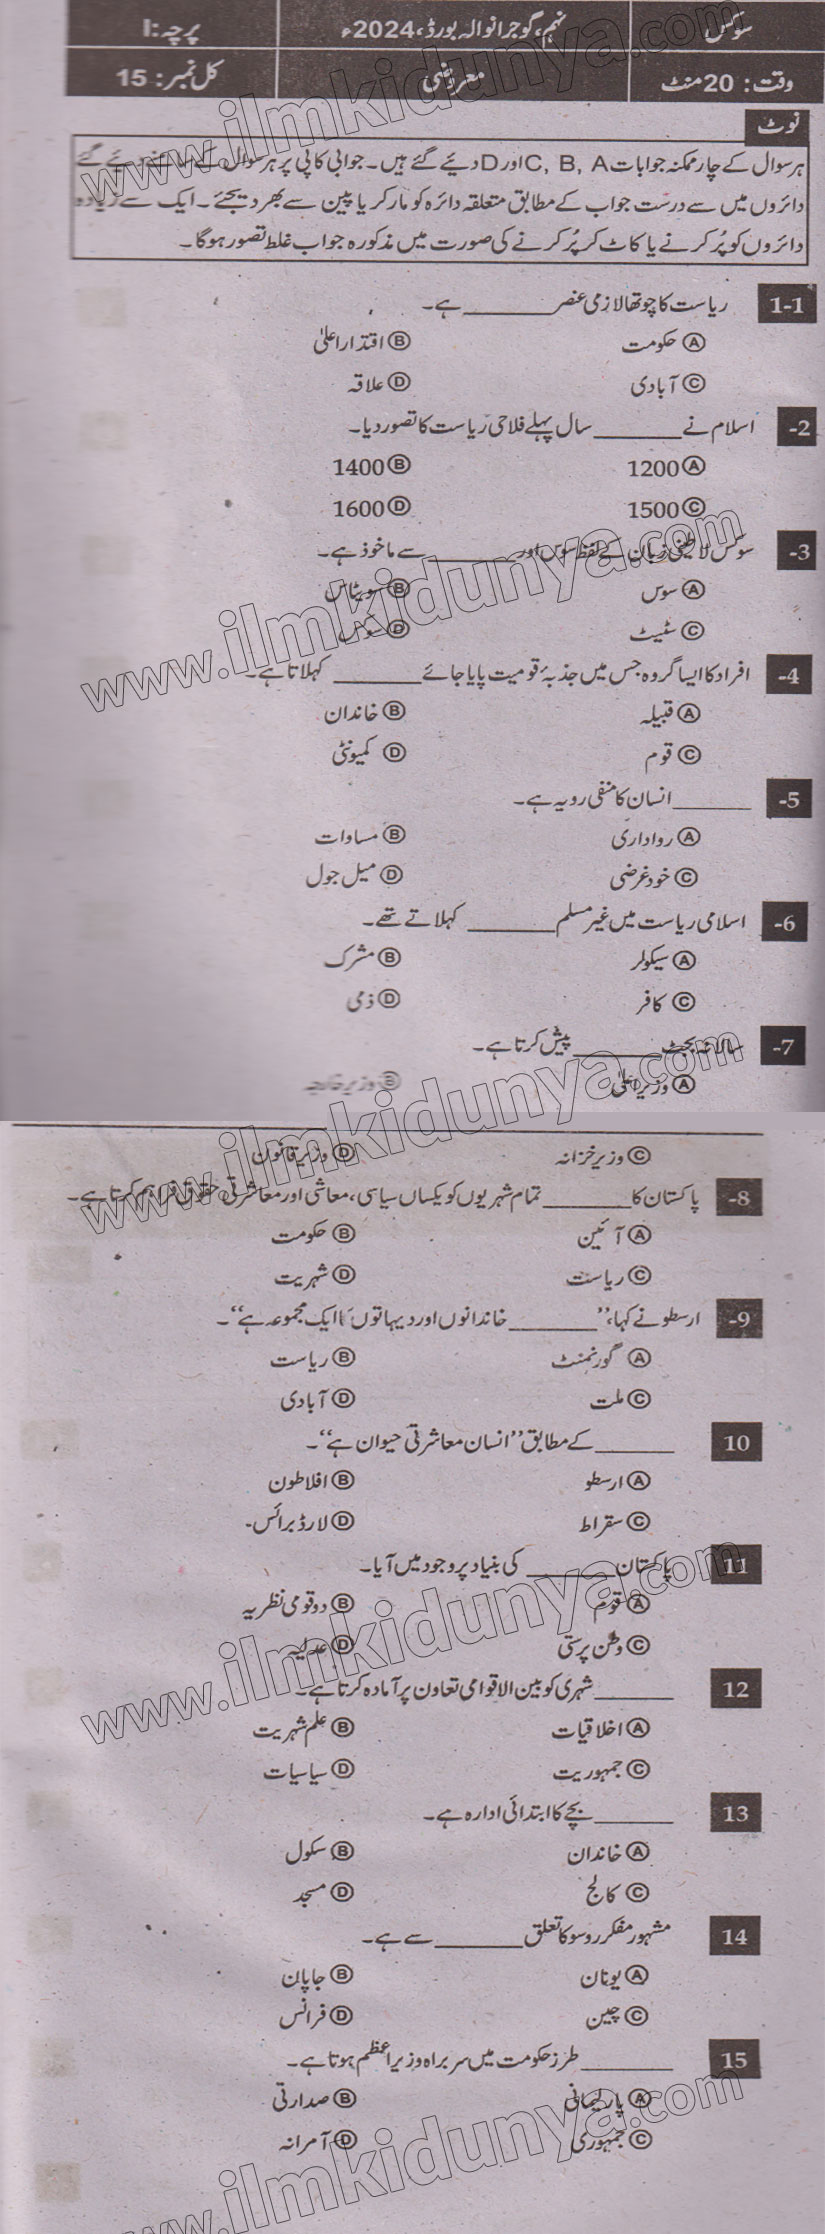 سوکس
نہم، گوجرانوالہ بورڈ، 2024ء
پرچہ: I
وقت: 20 منٹ
معروضی
کل نمبر: 15
نوٹ
ہر سوال کے چار ممکنہ جوابات C, B, A اور D دیئے گئے ہیں۔ جوابی کاپی پر ہر سوال کے سامنے دیئے گئے
دائروں میں سے درست جواب کے مطابق متعلقہ دائرہ کو مارکر یا پین سے بھر دیجئے۔ ایک سے زیادہ
دائروں کو پُر کرنے یا کاٹ کر پُر کرنے کی صورت میں مذکورہ جواب غلط تصور ہوگا۔
1-1 ریاست کا چوتھا لازمی عنصر ________ ہے۔
Ⓐ حکومت Ⓑ اقتدار اعلیٰ
Ⓒ آبادی Ⓓ علاقہ
-2 اسلام نے ________ سال پہلے فلاحی ریاست کا تصور دیا۔
Ⓐ 1200 Ⓑ 1400
Ⓒ 1500 Ⓓ 1600
-3 سوکس لاطینی زبان کے لفظ سوس اور ________ سے ماخوذ ہے۔
Ⓐ سوس Ⓑ سویٹاس
Ⓒ سٹیٹ Ⓓ سوکس
-4 افراد کا ایسا گروہ جس میں جذبۂ قومیت پایا جائے ________ کہلاتا ہے۔
Ⓐ قبیلہ Ⓑ خاندان
Ⓒ قوم Ⓓ کمیونٹی
-5 ________ انسان کا منفی رویہ ہے۔
Ⓐ رواداری Ⓑ مساوات
Ⓒ خود غرضی Ⓓ میل جول
-6 اسلامی ریاست میں غیر مسلم ________ کہلاتے تھے۔
Ⓐ سیکولر Ⓑ مشرک
Ⓒ کافر Ⓓ ذمی
-7 سالانہ بجٹ ________ پیش کرتا ہے۔
Ⓐ وزیر اعلیٰ Ⓑ وزیر خارجہ
Ⓒ وزیر خزانہ Ⓓ وزیر قانون
-8 پاکستان کا ________ تمام شہریوں کو یکساں سیاسی، معاشی اور معاشرتی حقوق فراہم کرتا ہے۔
Ⓐ آئین Ⓑ حکومت
Ⓒ ریاست Ⓓ شہریت
-9 ارسطو نے کہا، ’’________ خاندانوں اور دیہاتوں کا ایک مجموعہ ہے‘‘۔
Ⓐ گورنمنٹ Ⓑ ریاست
Ⓒ ملت Ⓓ آبادی
10 ________ کے مطابق ’’انسان معاشرتی حیوان ہے‘‘۔
Ⓐ ارسطو Ⓑ افلاطون
Ⓒ سقراط Ⓓ لارڈ برائس۔
11 پاکستان ________ کی بنیاد پر وجود میں آیا۔
Ⓐ قوم Ⓑ دو قومی نظریہ
Ⓒ وطن پرستی Ⓓ عدلیہ
12 ________ شہری کو بین الاقوامی تعاون پر آمادہ کرتا ہے۔
Ⓐ اخلاقیات Ⓑ علم شہریت
Ⓒ جمہوریت Ⓓ سیاسیات
13 ________ بچے کا ابتدائی ادارہ ہے۔
Ⓐ خاندان Ⓑ سکول
Ⓒ کالج Ⓓ مسجد
14 مشہور مفکر روسو کا تعلق ________ سے ہے۔
Ⓐ یونان Ⓑ جاپان
Ⓒ چین Ⓓ فرانس
15 ________ طرز حکومت میں سربراہ وزیر اعظم ہوتا ہے۔
Ⓐ پارلیمانی Ⓑ صدارتی
Ⓒ جمہوری Ⓓ آمرانہ
www.ilmkidunya.com
www.ilmkidunya.com
www.ilmkidunya.com
www.ilmkidunya.com
www.ilmkidunya.com